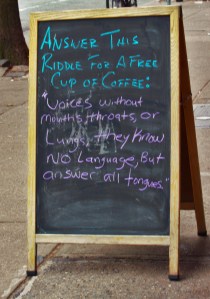 ANSWER THIS
RIDDLE FOR A FREE
CUP OF COFFEE:
"Voices without
mouths, throats, or
Lungs, they know
NO Language, But
answer all tongues."